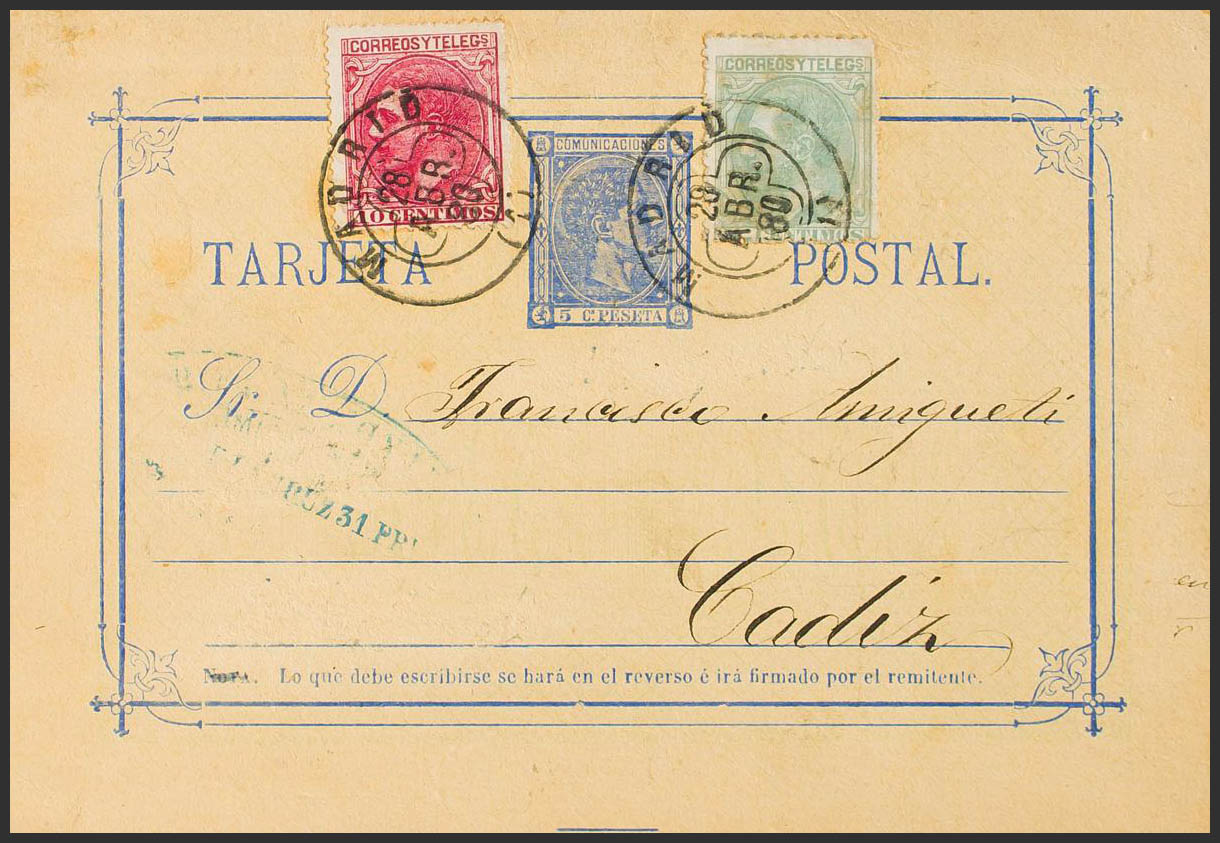 CORREOS Y TELEGS
10 CENTIMOS
CORREOS Y TELEGS
CENTIMOS
COMUNICACIONES
5 Cs PESETA
MADRID
28
ABR.
80
MADRID
28
ABR.
80
TARJETA POSTAL.
Sr. D. Francisco Amigueti
31 PPL
Cadiz
NOTA. Lo que debe escribirse se hará en el reverso é irá firmado por el remitente.
en